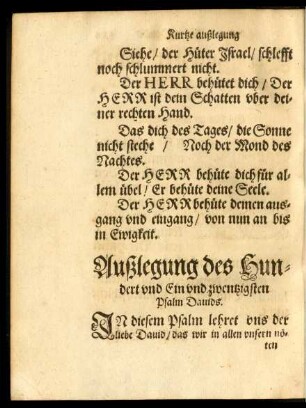 Kurtze außlegung
Siehe / der Hüter Israel / schlefft
noch schlummert nicht.
Der HERR behütet dich / Der
HERR ist dein Schatten vber dei-
ner rechten Hand.
Das dich des Tages / die Sonne
nicht steche / Noch der Mond des
Nachtes.
Der HERR behüte dich für al-
lem übel / Er behüte deine Seele.
Der HERR behüte deinen aus-
gang vnd eingang / von nun an bis
in Ewigkeit.
Außlegung des Hun-
dert vnd Ein vnd zwentzigsten
Psalm Dauids.
IN diesem Psalm lehret vns der
liebe Dauid / das wir in allen vnsern nö-
ten